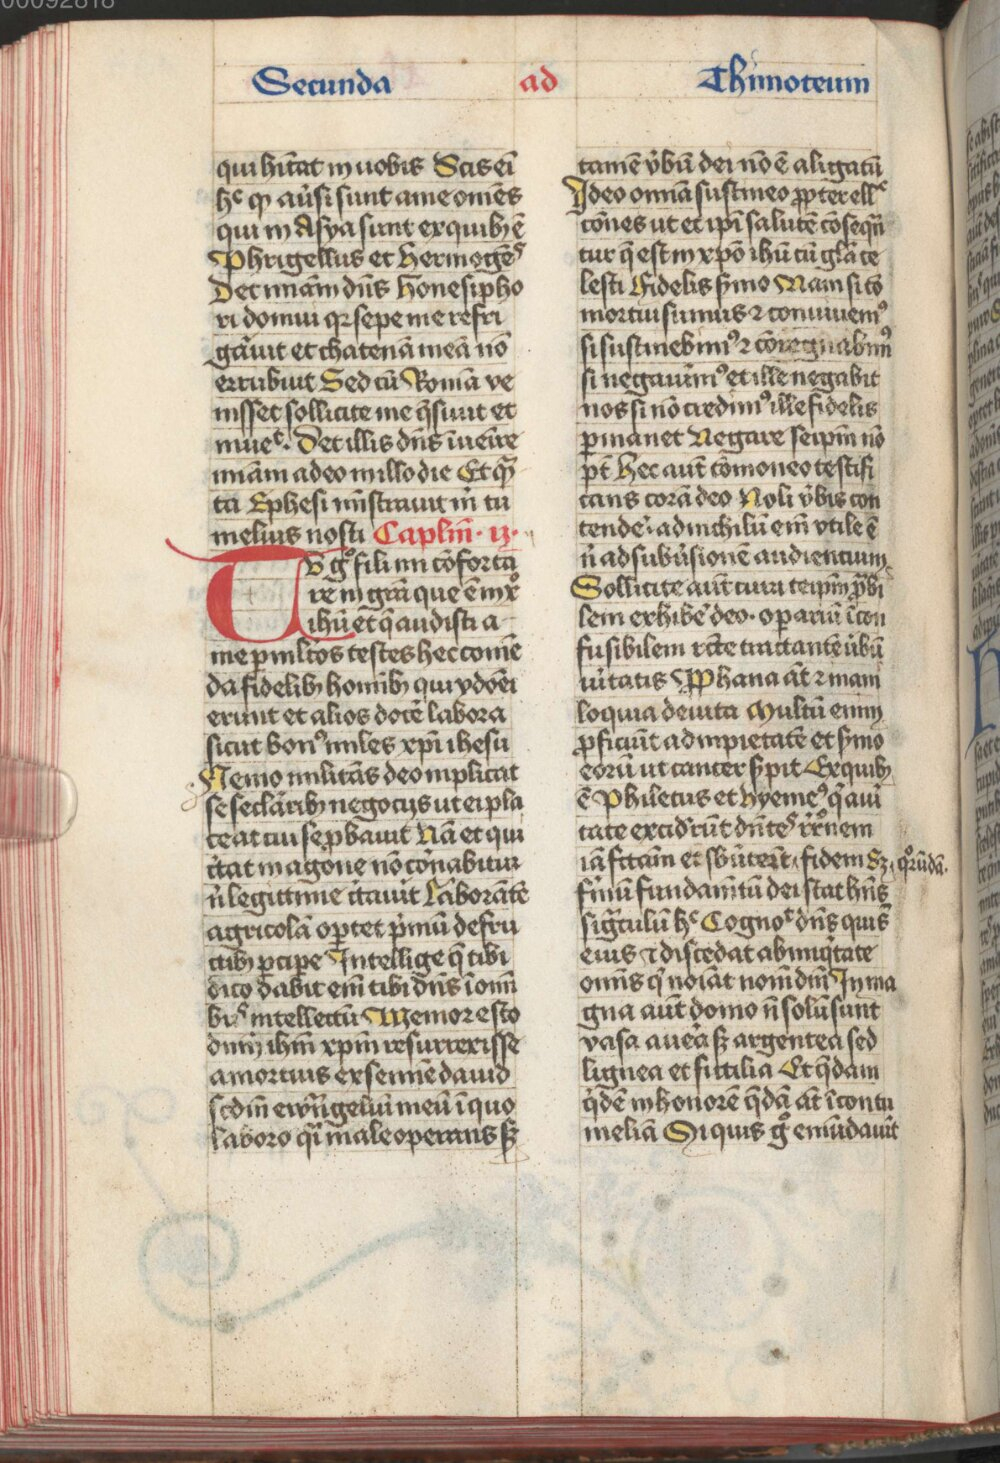 00092818
Secunda ad Thimoteum
qui hitat in uobis Scis eī
hᶜ qꝫ aūsi sunt a me omēs
qui in Asya sunt ex quibꝫ ē
Phrigellus et hermogēˢ
Det miām dn̄s honesipho
ri domui qꝛ sepe me refri
gāuit et chatenā meā nō
erubuit Sed cū Romā ve
nisset sollicite me q̄siuit et
inueᵗ. Det illis dn̄s īuēire
miām a deo in illo die Et q̄
ta Ephesi mīstrauit m̄ tu
melius nosti Caplm̄ · ij ·
Tv gͦ fili mi cōforta
re in grā que ē in xͦ
ihū et q̄ audisti a
me p multos testes hec comē
da fidelibꝫ homībꝫ qui ydoēi
erunt et alios docē labora
sicut bon⁹ miles xp̄i ihesu
Nemo militās deo inplicat
se seclāribꝫ negocijs ut ei pla
ceat cui se ꝓbauit Nā et qui
c̄tat in agone nō cōnabitur
n̄ legittime c̄tauit Laborātē
agricolā oꝑtet pͥmū de fru
ctibꝫ ꝑcipe Intellige q̄ tibi
dico dabit em̄ tibi dn̄s ī omī
bꝫ intellectū Memor esto
dnm̄ ihm̄ xpm̄ resurrexisse
a mortuis ex semīe dauid
scdm̄ ewn̄geliū meū ī quo
laboro qͥ male operans sꝫ
tamē v̄bū dei nō ē aligatū
Ideo omīa sustineo ꝓpter ellᶜ
tōnes ut et ip̄i salutē cōseqn̄
tur q̄ est in xpō ihū cū glā ce
lesti Fidelis sͬmo Nam si cō
mortui sumus ⁊ conuiuem⁹
si sustinebim⁹ ⁊ cōregnabim⁹
si negauim⁹ et ille negabit
nos si nō credim⁹ ille fidelis
ꝑmanet Negare seipm̄ nō
pt̄ Hec aut̄ cōmoneo testifi
cans corā deo Noli v̄bis con
tende ad nichilū em̄ vtile ē
n̄ ad subu̇sionē audientium
Sollicite aut̄ cura teipm̄ ꝓbi
lem exhibē deo · operariū īcon
fusibilem rc̄te tractantē v̄bū
uītatis Prophana āt ⁊ inani
loquia deuita Multū enim
ꝓficiūt ad inpietatē et sͬmo
eorū ut cancer sͬpit Ex quibꝫ
ē Philetus et hyemeˢ q̄ a uī
tate excid̄rūt dn̄teˢ rr̄onem
iā fctām et sb̄uterūt fidem Sꝫ
qͦrūdā.
fͥmū fundam̄tū dei stat hn̄s
signͣculū hᶜ Cognoᵗ dn̄s qui sūt
eius ⁊ discedat ab iniqͥtate
omīs qͥ noīat nom̄ dm̄ In ma
gna aut̄ domo n̄ solū sunt
vasa aurea ⁊ argentea sed
lignea et fictilia Et q̄dam
q̄dē in honorē q̄dā āt ī contu
meliā Si quis gͦ emūdauīt